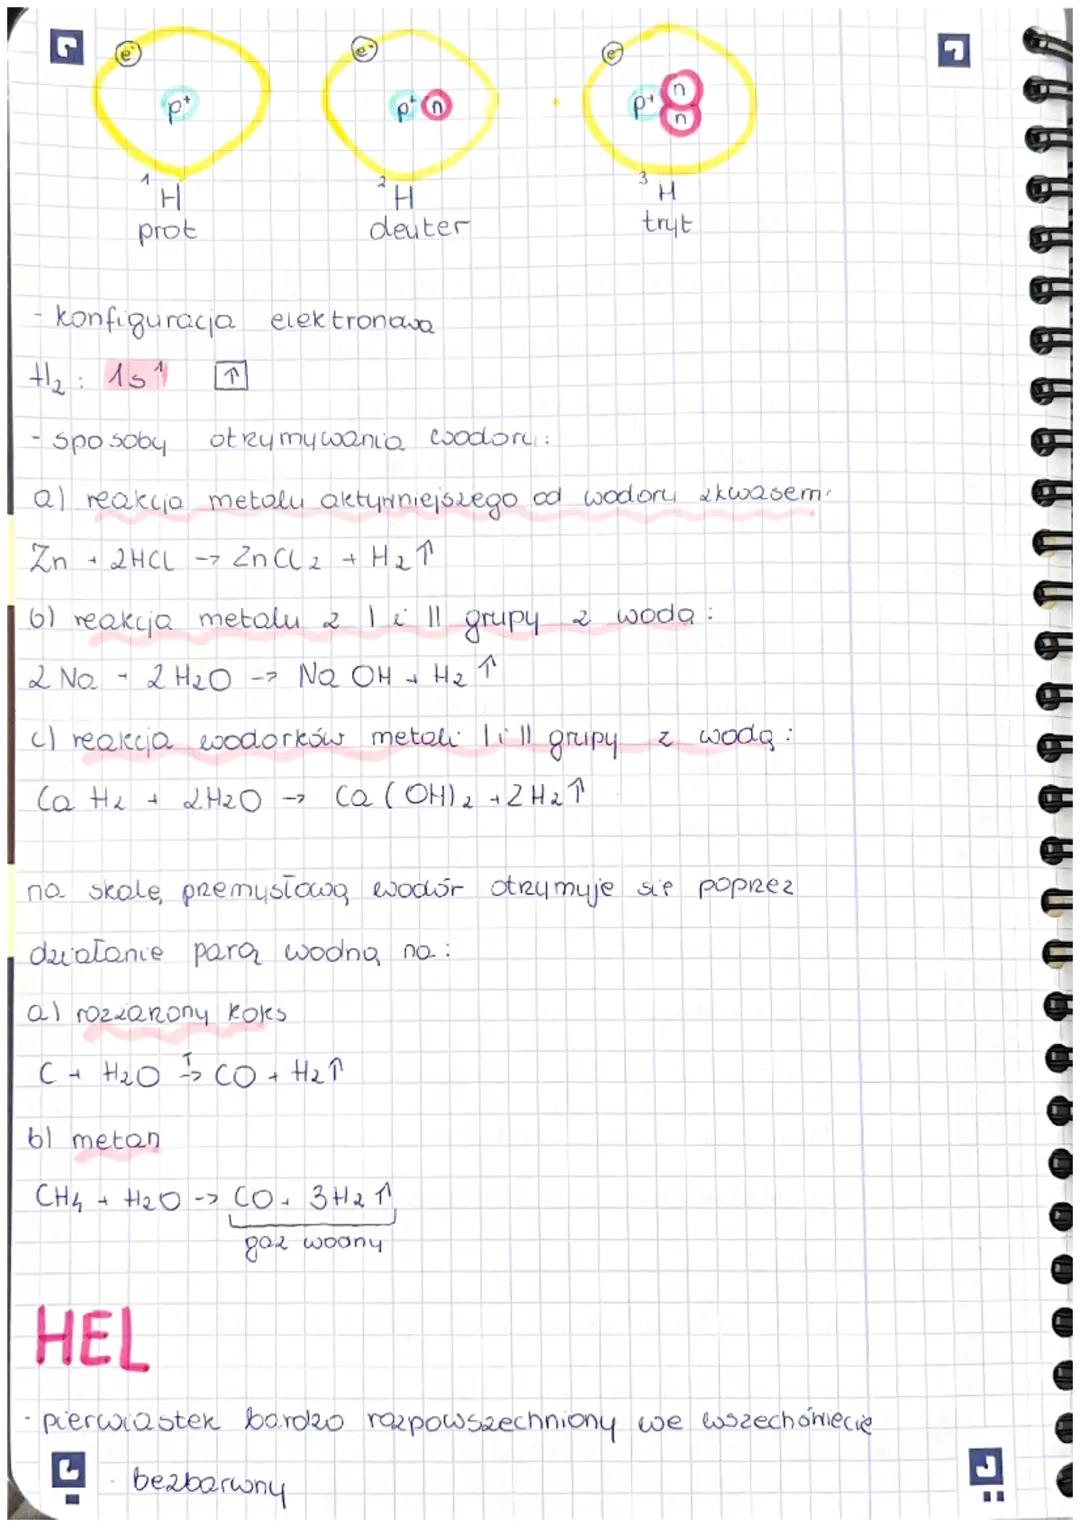 e⁻ e⁻ e⁻
p⁺ p⁺ n p⁺ n n
¹H ²H ³H
prot deuter tryt
- konfiguracja elektronowa
H₂ : 1s¹ ↑
- sposoby otrzymywania wodoru :
a) reakcja metalu aktywniejszego od wodoru z kwasem:
Zn + 2HCl -> ZnCl₂ + H₂↑
b) reakcja metalu z I i II grupy z wodą :
2 Na + 2 H₂O -> Na OH + H₂ ↑
c) reakcja wodorków metali I i II grupy z wodą :
Ca H₂ + 2H₂O -> Ca (OH)₂ + 2H₂↑
na skalę przemysłową wodór otrzymuje się poprzez
działanie parą wodną na :
a) rozżarzony koks
C + H₂O T-> CO + H₂↑
b) metan
CH₄ + H₂O -> CO + 3H₂↑
gaz wodny
HEL
- pierwiastek bardzo rozpowszechniony we wszechświecie
- bezbarwny